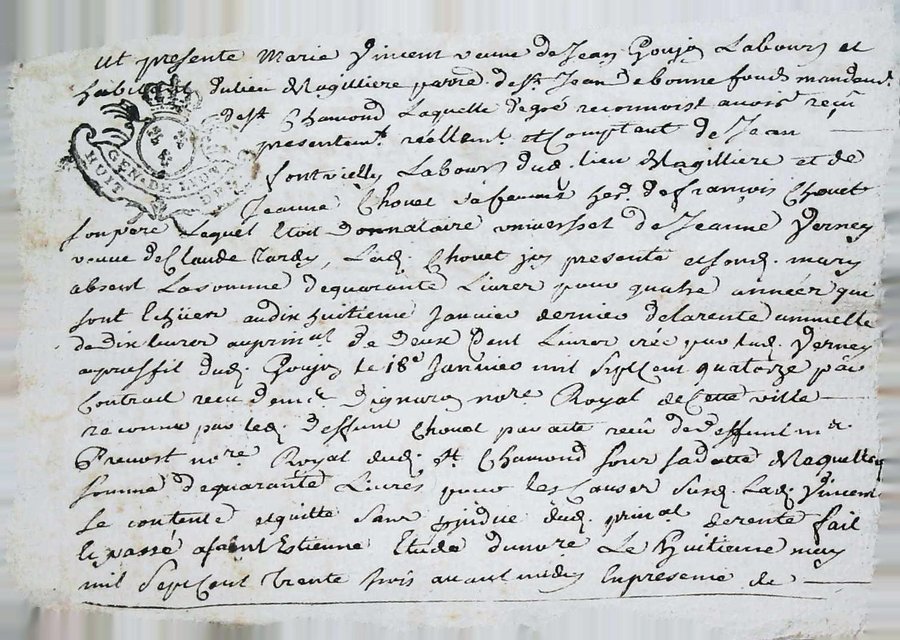 Ut presente Marie Vincent veuve de Jean Goujon Labours et
habitant du lieu Magilliere parr.e de St. Jean de bonne fonds mandem.t
de St. Chamond Laquelle de gré reconnoist avoir recû
HUIT GEN. DE LION DEN.
presentem.t réellem.t et Comptant de Jean
fontvielly Labours dud. lieu Magilliere et de
Jeanne Chovet sa femme hed. de françois Chovet
son pere Lequel Etoit donnataire universsel de Jeanne Verney
veuve de Claude Tardy, Lad. Chovet icy presente et sond. mary
absent La somme de quarante Livres pour quatre années qui
sont Echües au dix huitieme Janvier dernier de la rente annuelle
de dix livres au prinal de deux Cent Livres crée par lad. Verney
au proffit dud. Goujon le 18e Janvier mil Sept Cent quatorze par
Contract recû de mr. Dignaron nore. Royal de Cette ville
reconnu par led. deffunt Chovet par acte recû de deffunt mr.
Prevost nore. Royal dud. St. Chamond sous sa datte De laquelle
somme de quarante Livres pour les Causes susd. Lad. Vincent
se contente et quitte sans prejudice dud. prinal de rente fait
et passé a Saint Estienne Etude du nore. Le huitieme may
mil Sept Cent trente trois avant midy En presence de